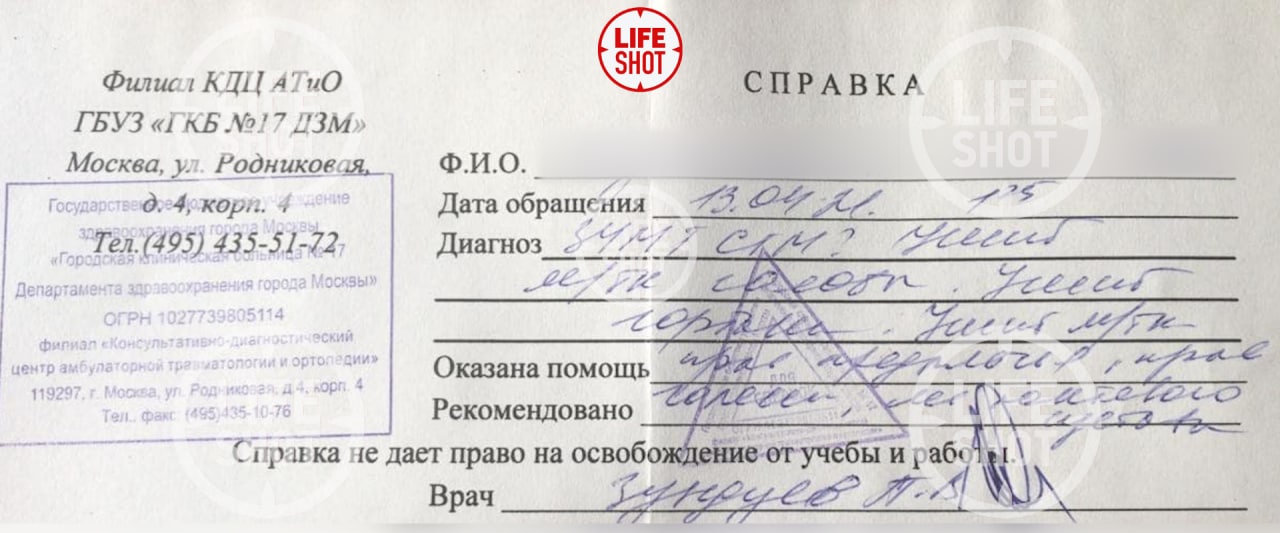 LIFE
SHOT
Филиал КДЦ АТиО
ГБУЗ «ГКБ №17 ДЗМ»
Москва, ул. Родниковая,
д. 4, корп. 4
Тел.(495) 435-51-72
Государственное учреждение
здравоохранения города Москвы
«Городская клиническая больница № 17
Департамента здравоохранения города Москвы»
ОГРН 1027739805114
филиал «Консультативно-диагностический
центр амбулаторной травматологии и ортопедии»
119297, г. Москва, ул. Родниковая, д.4, корп. 4
Тел., факс (495)435-10-76
СПРАВКА
Ф.И.О.
Дата обращения 13.04.21. 1 35
Диагноз ЗЧМТ СГМ? Ушиб
м/тк головы. Ушиб
гортани. Ушиб м/тк
Оказана помощь прав предплечья, прав
Рекомендовано голени, локтевого
сустава
Справка не дает право на освобождение от учебы и работы.
Врач Зундуев П. В
LIFE
SHOT